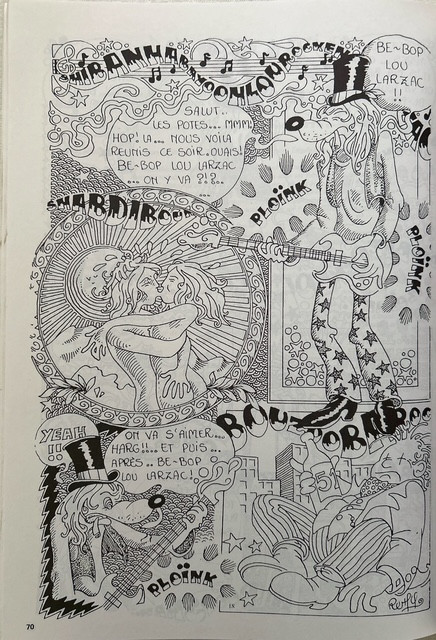 BE-BOP
LOU
LARZAC
!!
SALUT..
LES POTES... MMM.
HOP! LA... NOUS VOILÀ
REUNIS CE SOIR..OUAIS!
BE-BOP LOU LARZAC
...ON Y VA ?!?..
PLOÏNK
PLOÏNK
YEAH
!!
ON VA S'AIMER...
HARG!!.. ET PUIS...
APRÈS.. BE-BOP
LOU LARZAC!
PLOÏNK
70